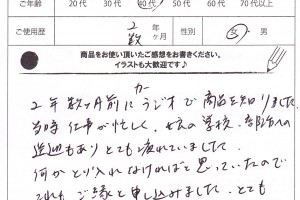 ご年齢 20代 30代 40代 50代 60代 70代以上
ご使用歴 2年 数ヶ月 性別 女・男
商品をお使い頂いたご感想をお書きください。
イラストも大歓迎です♪
2年数ヶ月前にカーラジオで商品を知りました。
当時仕事が忙しく、女の学校、部活への
送迎もありとても疲れていました。
何かとり入れなければと思っていたので
これも ご縁と申し込みました。とても